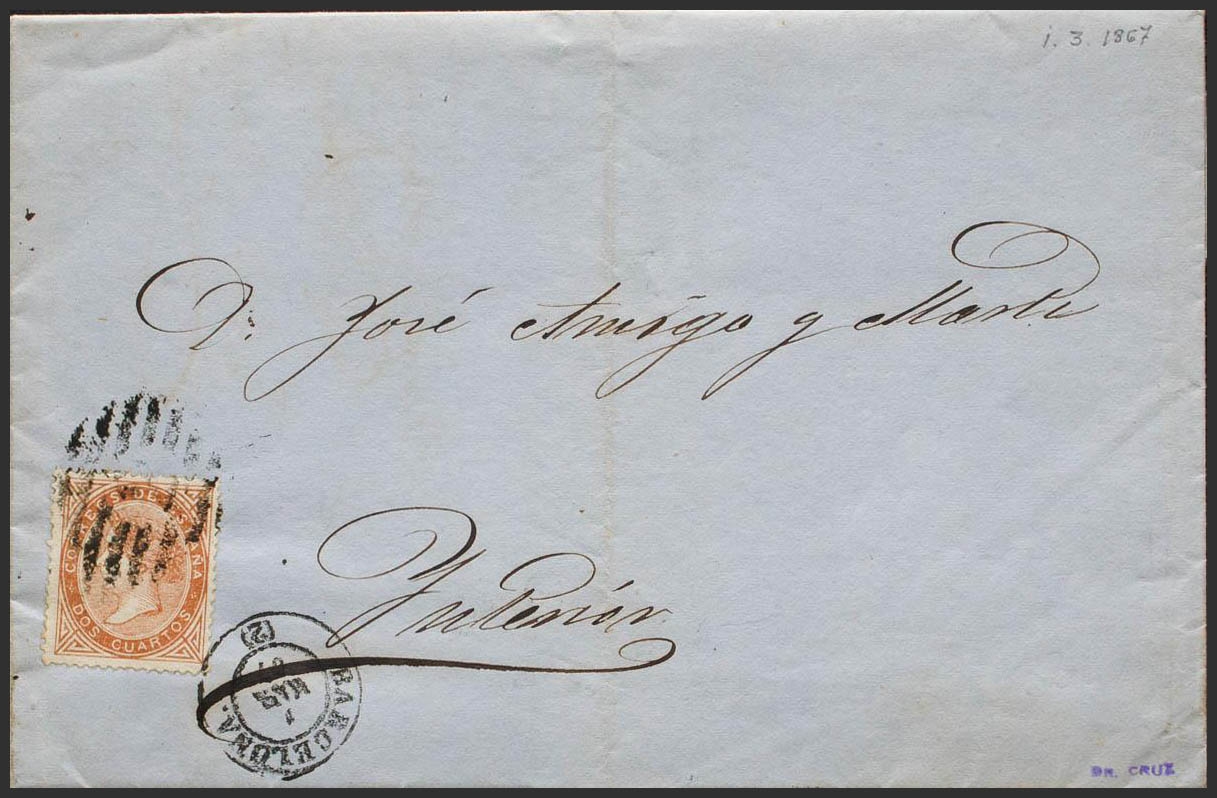 1. 3. 1867
D. José Amigo y Marti
CORREOS DE ESPAÑA
DOS CUARTOS
Ynteriór
BARCELONA.
1
MAR
67
(2)
DR. CRUZ